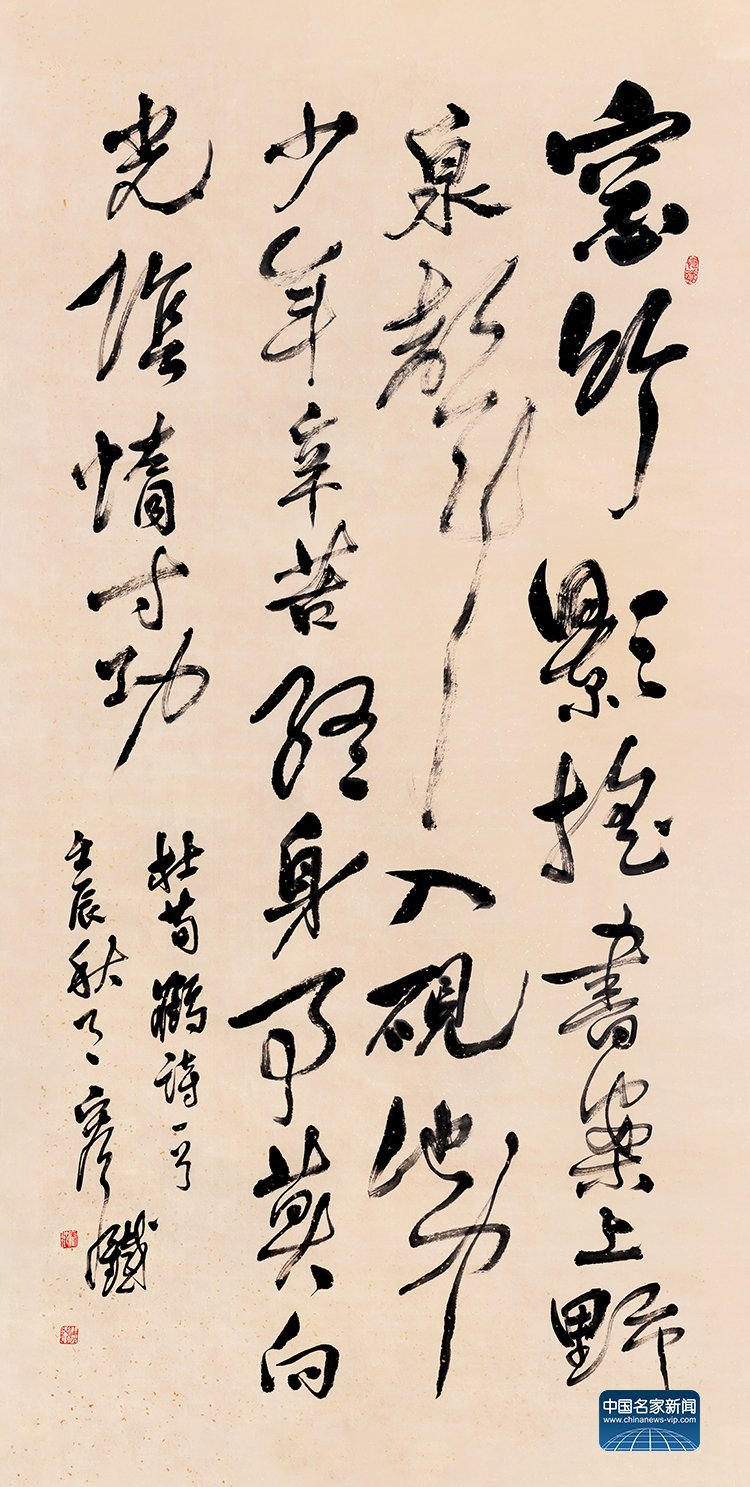 窓竹影摇書案上野
泉聲入硯池中
少年辛苦終身事莫向
光陰惰寸功
杜荀鶴詩一首
壬辰秋
中国名家新闻
www.chinanews-vip.com